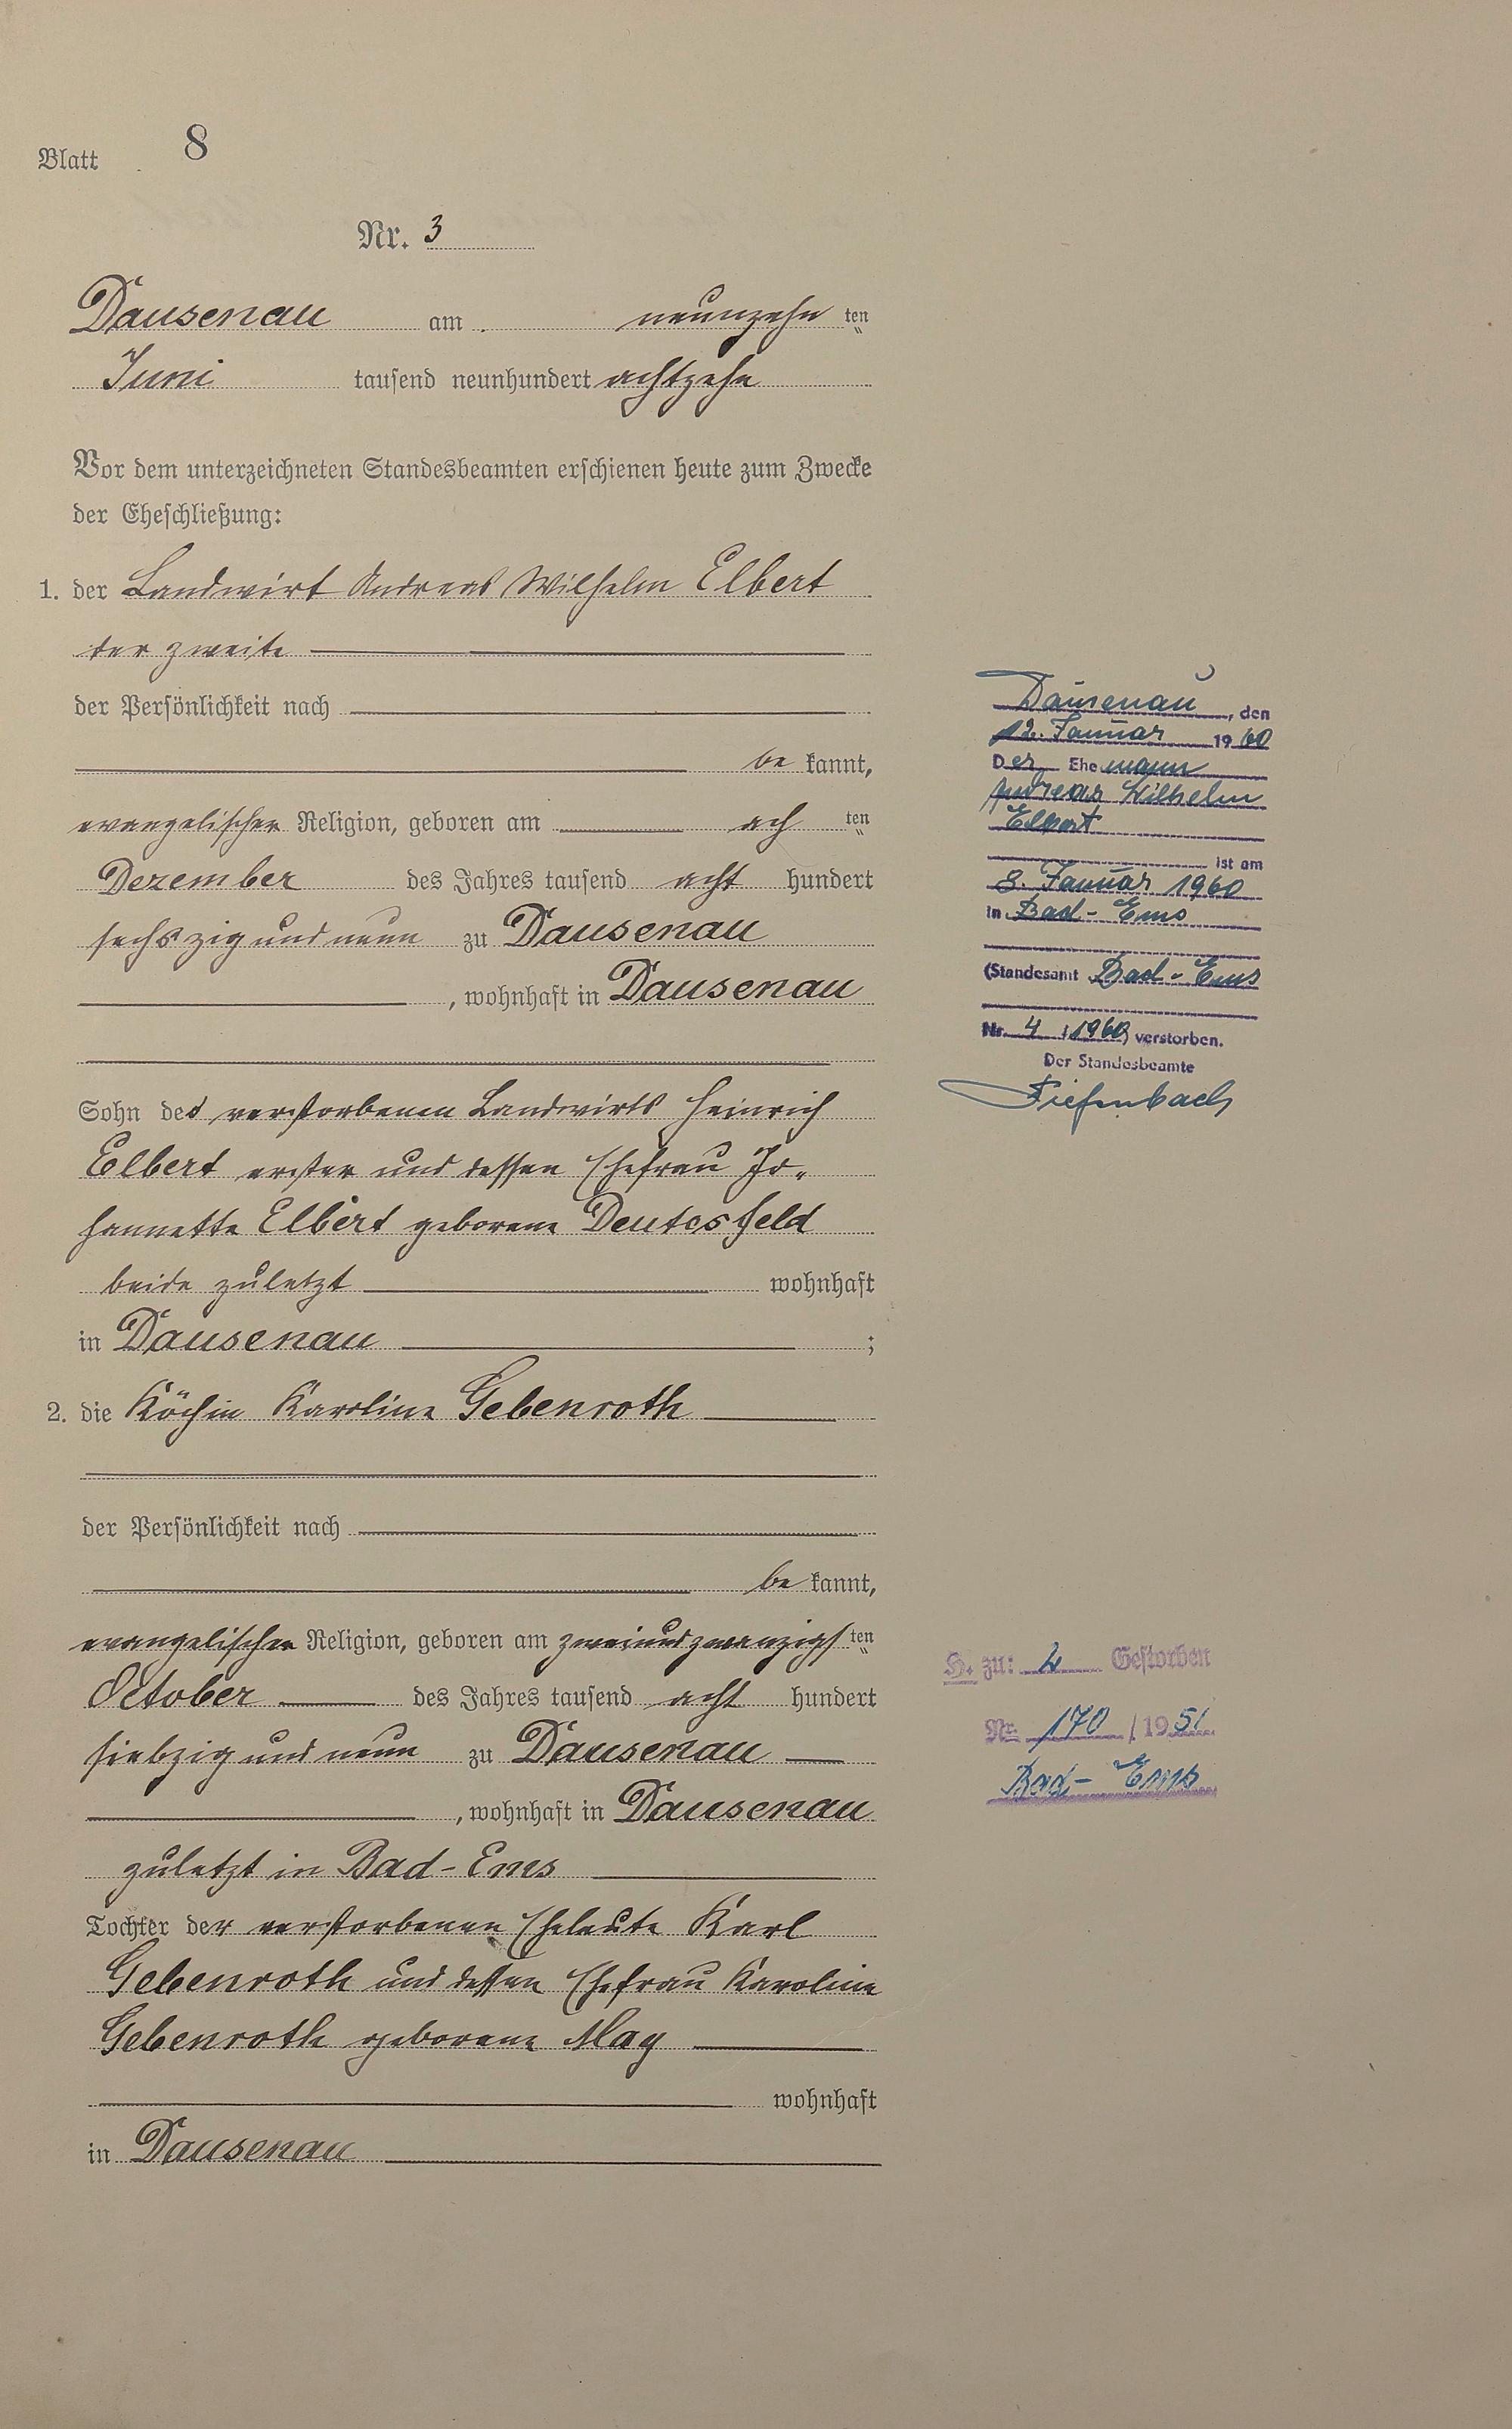 Blatt 8
Nr. 3
Dausenau am neunzehnten
Juni tausend neunhundert achtzehn
Vor dem unterzeichneten Standesbeamten erschienen heute zum Zwecke
der Eheschließung:
1. der Landwirt Andreas Wilhelm Elbert
der zweite
der Persönlichkeit nach
be kannt,
evangelischer Religion, geboren am achten
Dezember des Jahres tausend acht hundert
sechszig und neun zu Dausenau
, wohnhaft in Dausenau
Sohn des verstorbenen Landwirts Heinrich
Elbert erster und dessen Ehefrau Jo-
hannette Elbert geborene Deutesfeld
beide zuletzt wohnhaft
in Dausenau ;
2. die Köchin Karoline Gebenroth
der Persönlichkeit nach
be kannt,
evangelischer Religion, geboren am zweiundzwanzigsten
October des Jahres tausend acht hundert
siebzig und neun zu Dausenau
, wohnhaft in Dausenau
zuletzt in Bad-Ems
Tochter der verstorbenen Eheleute Karl
Gebenroth und dessen Ehefrau Karoline
Gebenroth geborene May
wohnhaft
in Dausenau
Dausenau, den
12. Januar 1960
Der Ehemann
Andreas Wilhelm
Elbert
ist am
8. Januar 1960
in Bad-Ems
(Standesamt Bad-Ems
Nr. 4 / 1960) verstorben.
Der Standesbeamte
Tiefenbach
H. zu: 2 Gestorben
Nr. 170 / 1951
Bad-Ems